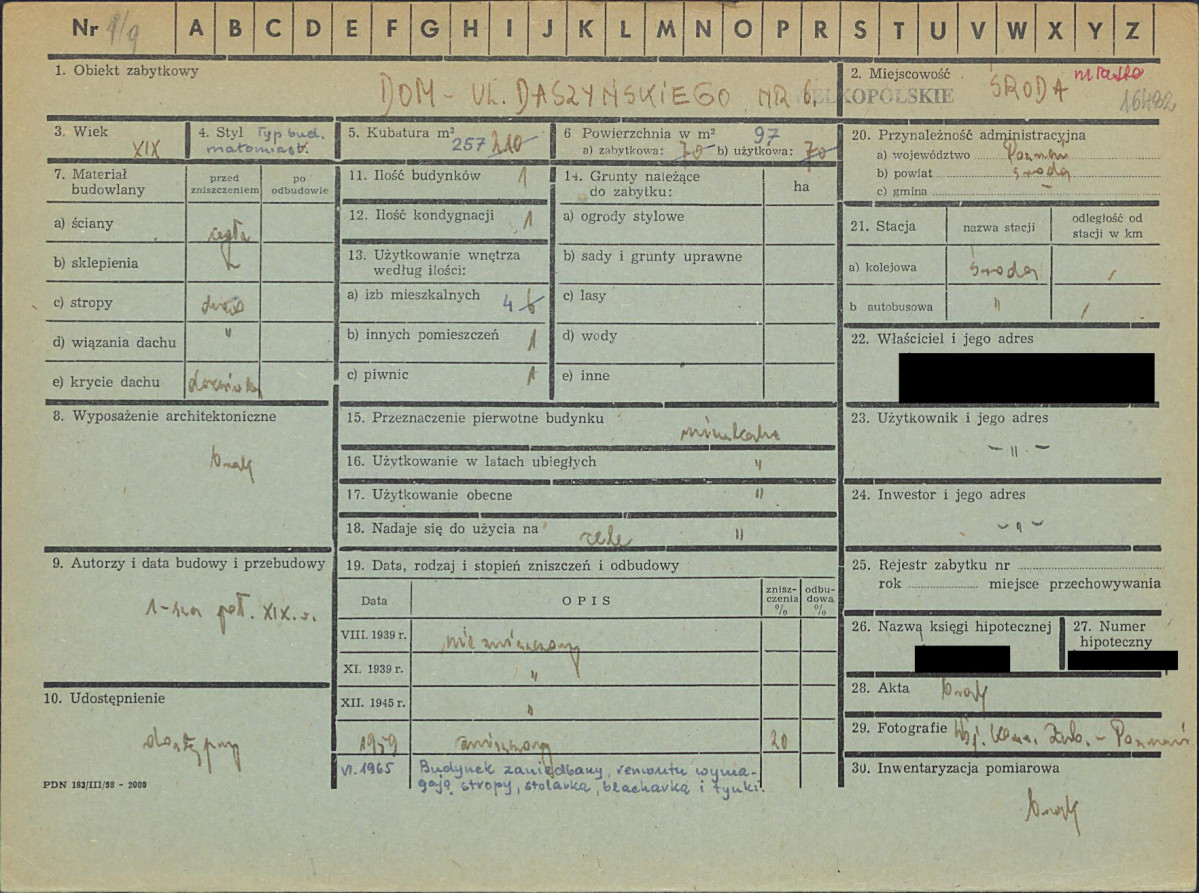 Nr 9/9 A B C D E F G H I J K L M N O P R S T U V W X Y Z
1. Obiekt zabytkowy
DOM - UL. DASZYŃSKIEGO NR 6.
2. Miejscowość ŚRODA miasto
WIELKOPOLSKIE 16482
3. Wiek XIX
4. Styl Typ bud. małomiast.
5. Kubatura m³ 257 210
6 Powierzchnia w m² 97
a) zabytkowa: 70 b) użytkowa: 70
7. Materiał budowlany
przed zniszczeniem
po odbudowie
a) ściany cegła
b) sklepienia
c) stropy drew
d) wiązania dachu "
e) krycie dachu dachówka
8. Wyposażenie architektoniczne
brak
9. Autorzy i data budowy i przebudowy
1-sza poł. XIX. w.
10. Udostępnienie
dostępny
PDN 183/III/58 - 2000
11. Ilość budynków 1
12. Ilość kondygnacji 1
13. Użytkowanie wnętrza według ilości:
a) izb mieszkalnych 4 6
b) innych pomieszczeń 1
c) piwnic 1
14. Grunty należące do zabytku:
ha
a) ogrody stylowe
b) sady i grunty uprawne
c) lasy
d) wody
e) inne
15. Przeznaczenie pierwotne budynku mieszkalne
16. Użytkowanie w latach ubiegłych "
17. Użytkowanie obecne "
18. Nadaje się do użycia na cele "
19. Data, rodzaj i stopień zniszczeń i odbudowy
Data
OPIS
znisz-
czenia
%
odbu-
dowa
%
VIII. 1939 r. nie zniszczony
XI. 1939 r. "
XII. 1945 r. "
1959 zniszczony 20
VI. 1965 Budynek zaniedbany, remontu wyma-
gają stropy, stolarka, blacharka i tynki.
20. Przynależność administracyjna
a) województwo Poznań
b) powiat Środa
c) gmina -
21. Stacja
nazwa stacji
odległość od stacji w km
a) kolejowa Środa /
b autobusowa " /
22. Właściciel i jego adres
23. Użytkownik i jego adres
- " -
24. Inwestor i jego adres
- " -
25. Rejestr zabytku nr
rok miejsce przechowywania
26. Nazwa księgi hipotecznej
27. Numer hipoteczny
28. Akta brak
29. Fotografie Woj. Kons. Zab. - Poznań
30. Inwentaryzacja pomiarowa
brak